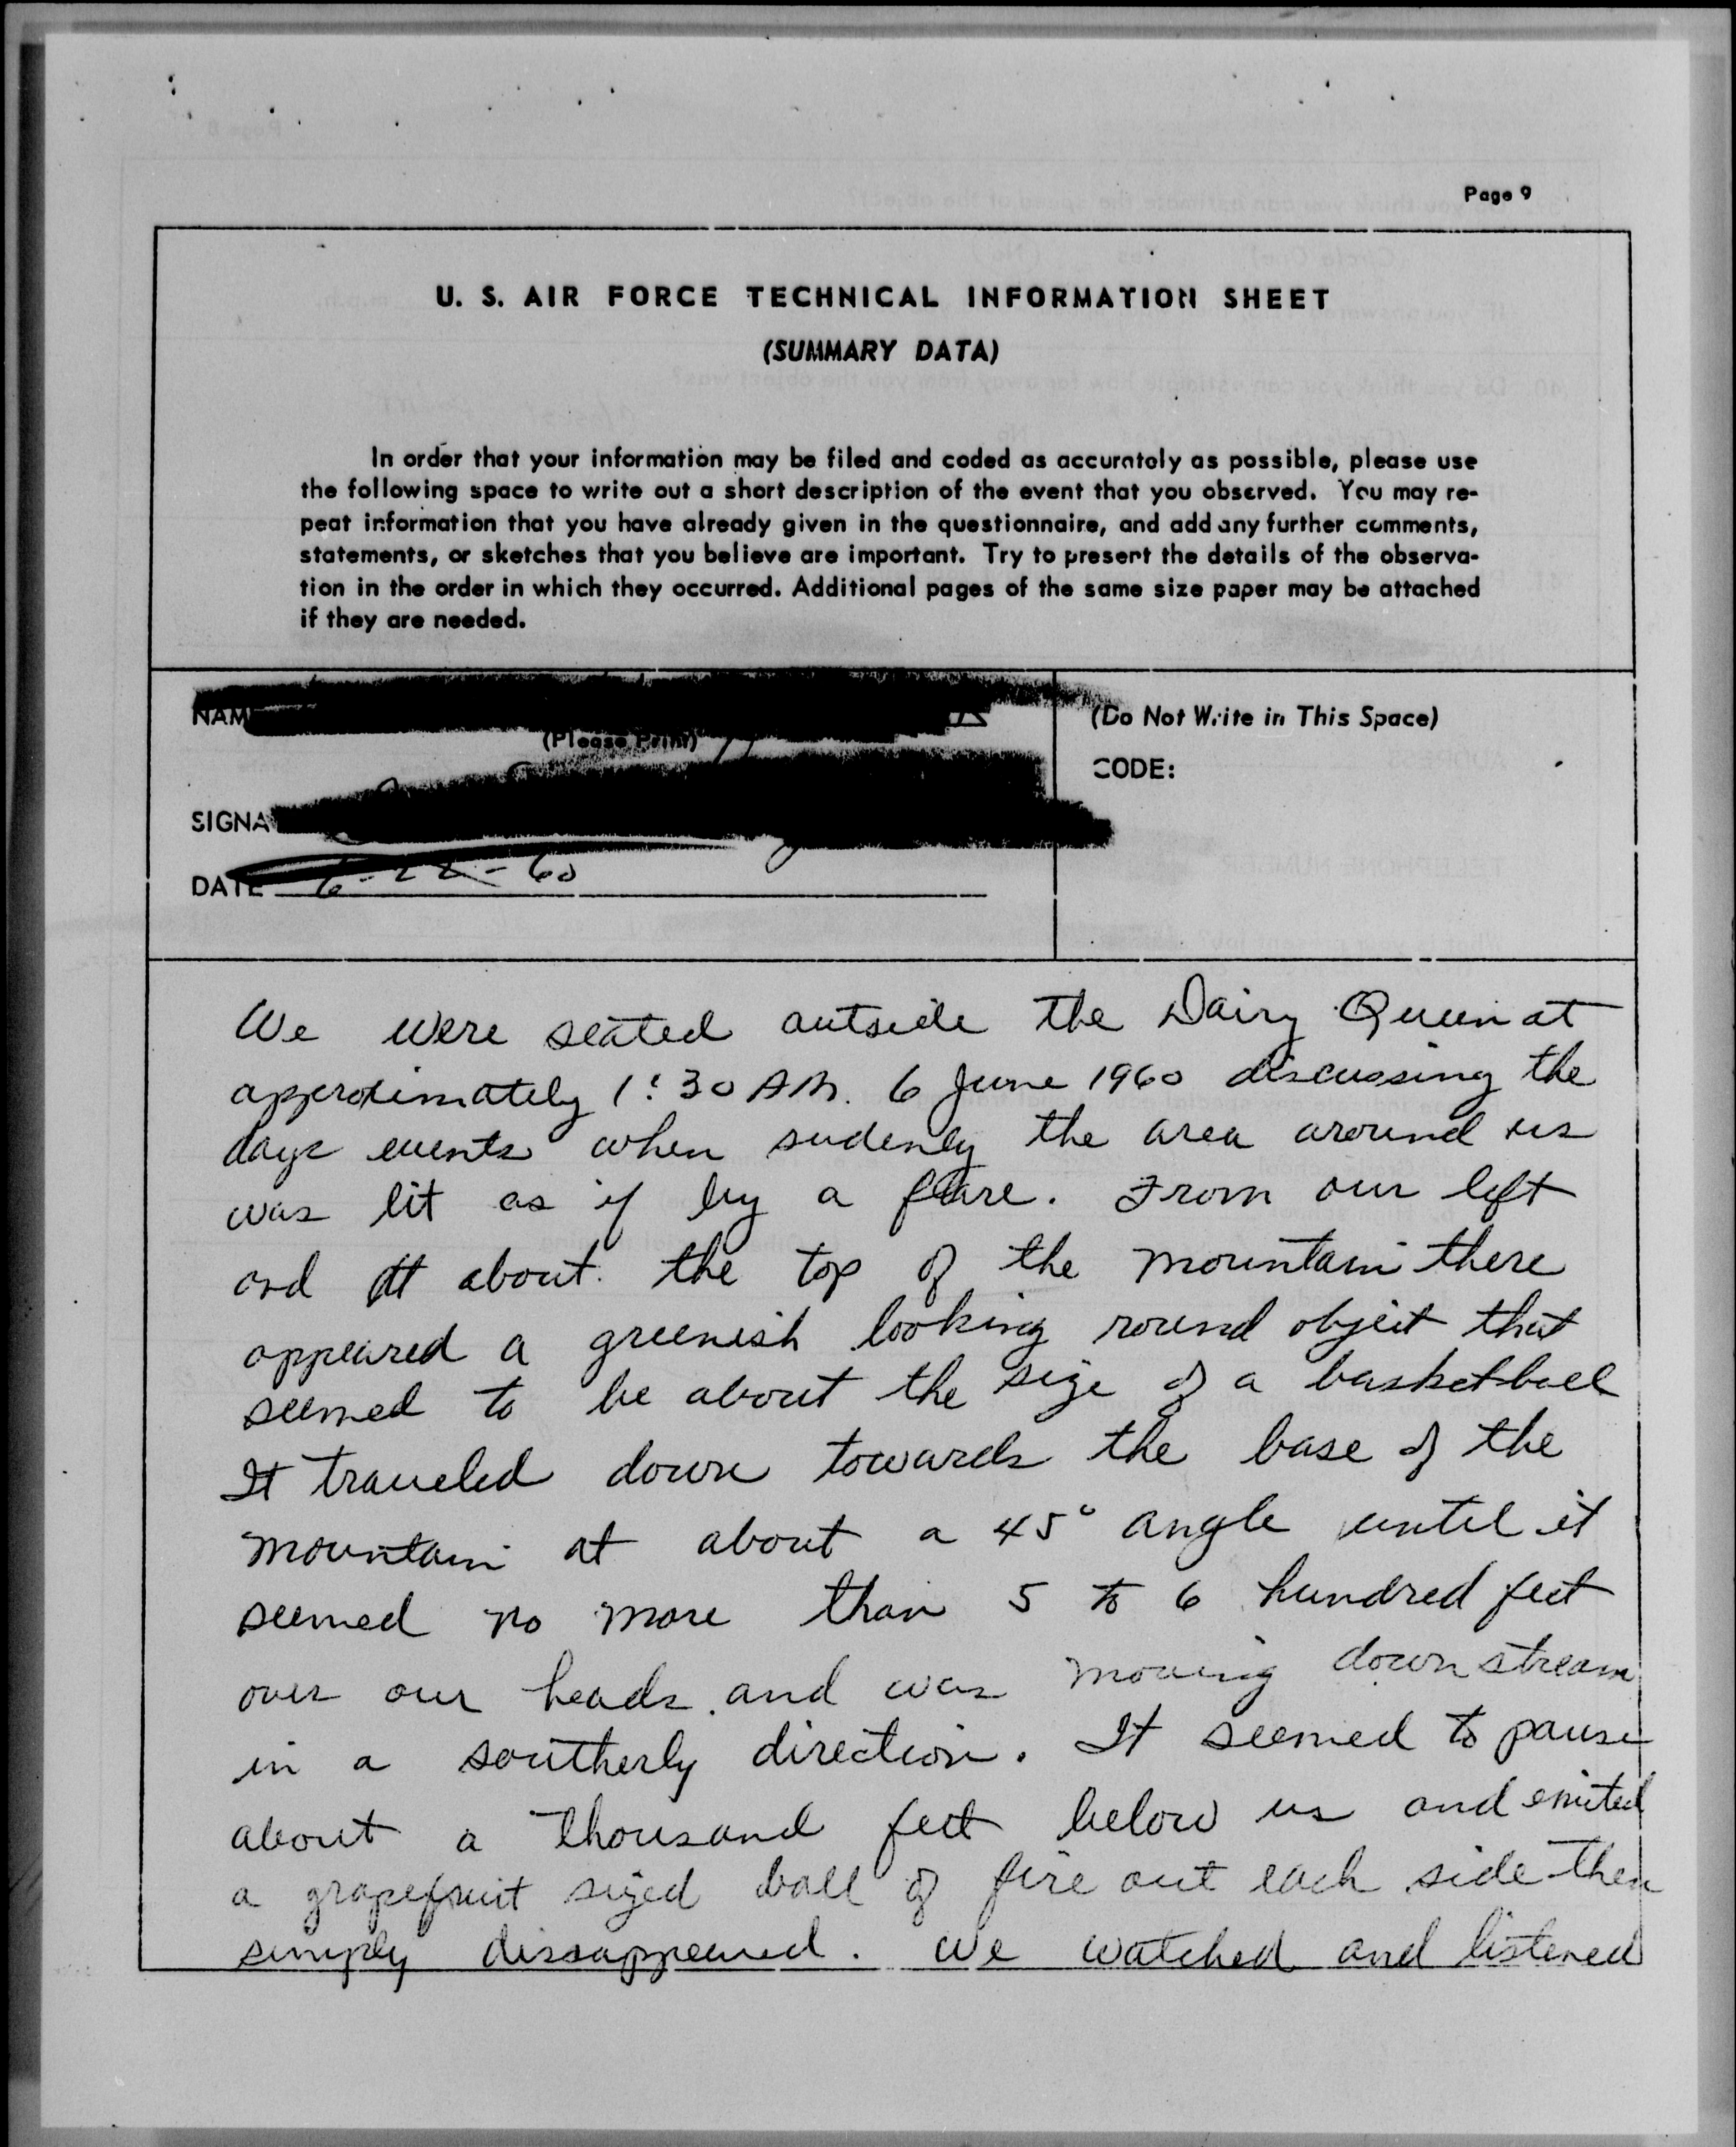 Page 9
U. S. AIR FORCE TECHNICAL INFORMATION SHEET
(SUMMARY DATA)
In order that your information may be filed and coded as accurately as possible, please use
the following space to write out a short description of the event that you observed. You may re-
peat information that you have already given in the questionnaire, and add any further comments,
statements, or sketches that you believe are important. Try to present the details of the observa-
tion in the order in which they occurred. Additional pages of the same size paper may be attached
if they are needed.
NAM
(Please Print)
(Do Not Write in This Space)
CODE:
SIGNA
DATE 6-22-60
We were seated outside the Dairy Queen at
approximately 1:30 AM. 6 June 1960 discussing the
days events when sudenly the area around us
was lit as if by a flare. From our left
and at about the top of the mountain there
appeared a greenish looking round object that
seemed to be about the size of a basketball
It traveled down towards the base of the
mountain at about a 45° angle until it
seemed no more than 5 to 6 hundred feet
over our heads and was moving down stream
in a southerly direction. It seemed to pause
about a thousand feet below us and emited
a grapefruit sized ball of fire out each side then
simply dissappeared. We watched and listened